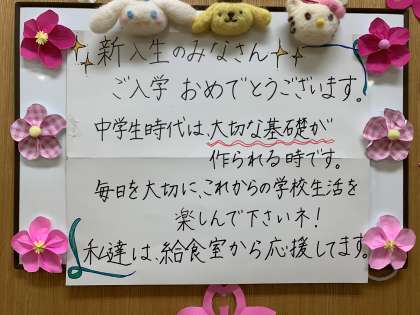 新入生のみなさん
ご入学 おめでとうございます。
中学生時代は、大切な基礎が
作られる時です。
毎日を大切に、これからの学校生活を
楽しんで下さいネ!
私達は、給食室から応援してます。